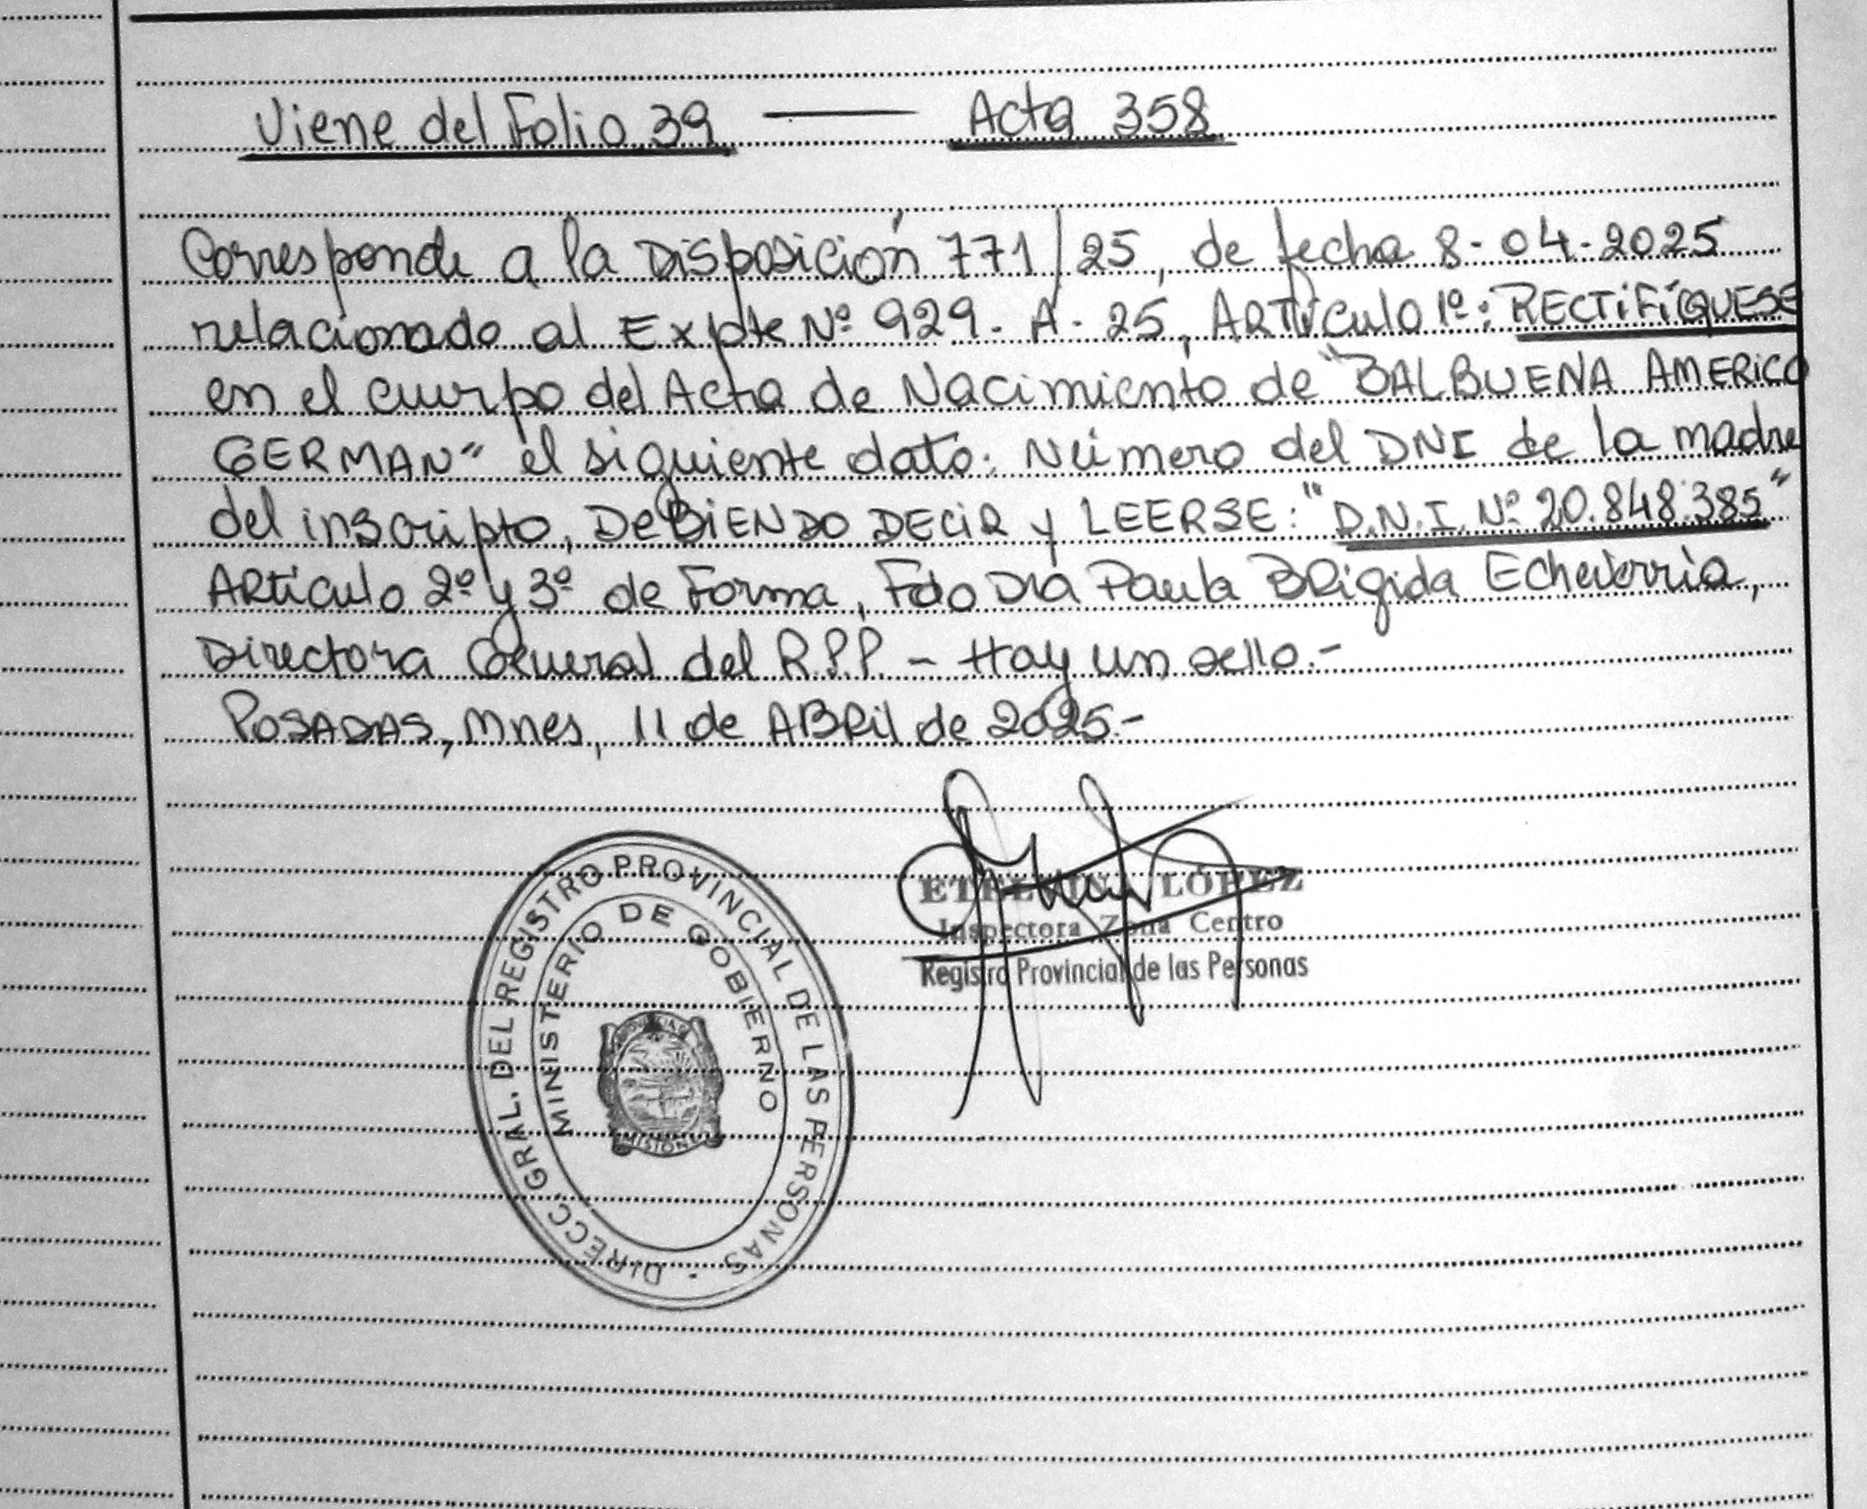 Viene del Folio 39 — Acta 358
Corresponde a la Disposición 771/25, de fecha 8-04-2025
relacionado al Expte Nº 929-A-25, ARTÍCulo 1º: RECTIFÍQUESE
en el cuerpo del Acta de Nacimiento de "BALBUENA AMERICO
GERMAN" el siguiente dato: Número del DNI de la madre
del inscripto, DEBIENDO DECIR y LEERSE: "D.N.I. Nº 20.848.385"
ARtículo 2º y 3º de Forma, Fdo Dra Paula BRígida Echeverría,
Directora General del R.P.P. - Hay un sello.-
POSADAS, Mnes, 11 de ABRil de 2025.-
DIRECC. GRAL. DEL REGISTRO PROVINCIAL DE LAS PERSONAS
MINISTERIO DE GOBIERNO
LÓPEZ
Inspectora Zona Centro
Registro Provincial de las Personas